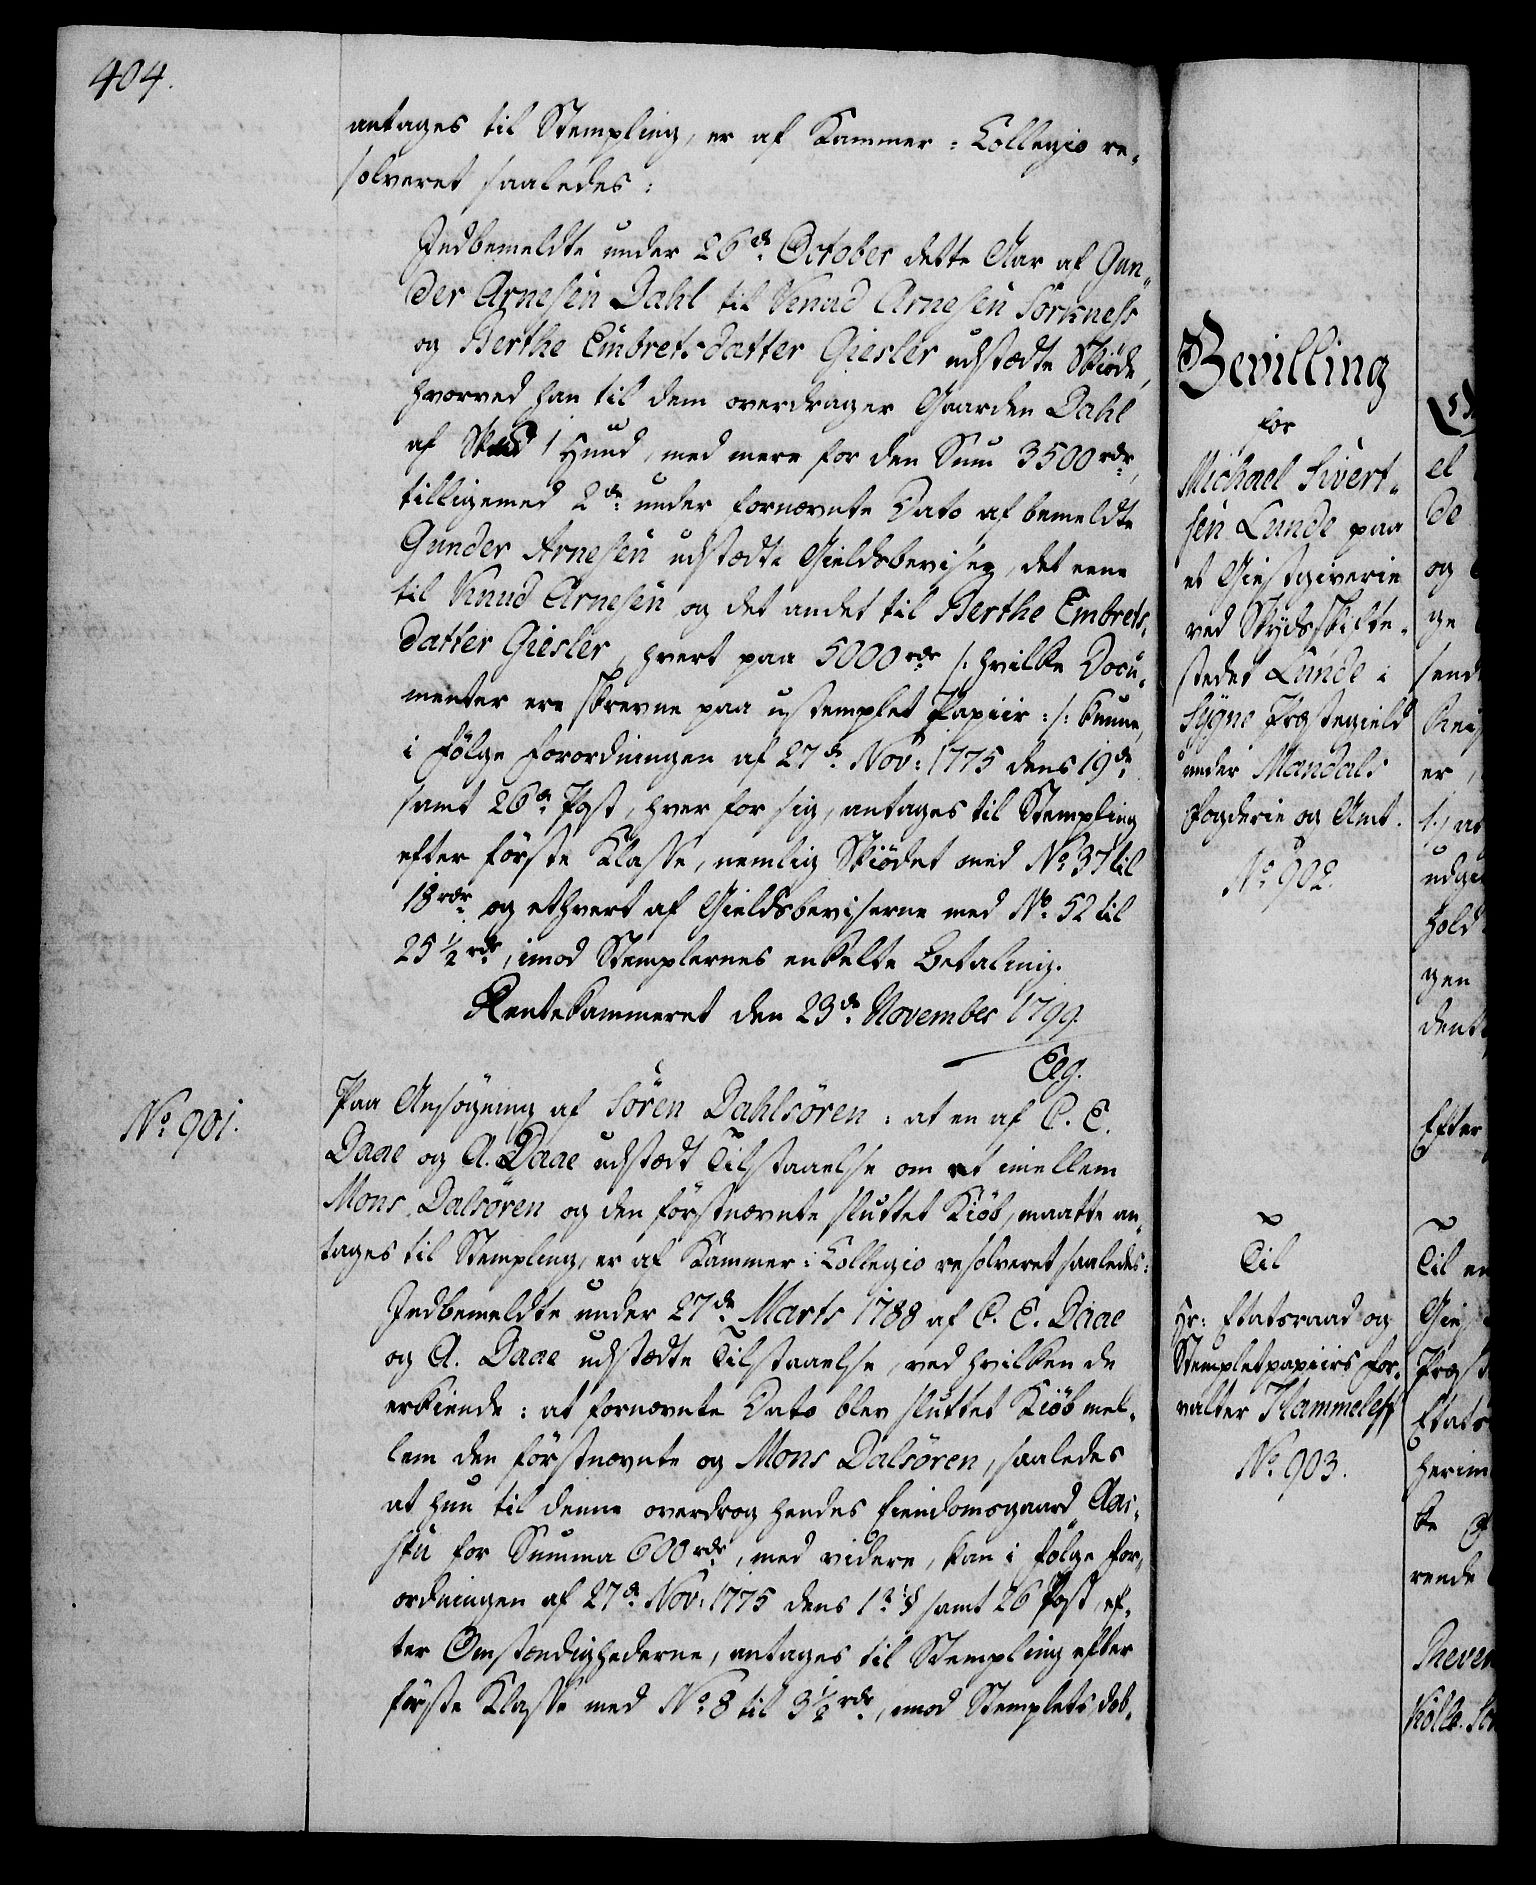 404.
antages til Stempling, er af Kammer-Collegio re-
solveret saaledes:
Indbemeldte under 26de October dette Aar af Gun-
der Arnesen Dahl til Knud Arnesen Sorkness
og Berthe Embretsdatter Giesler udstædte Skiøde,
hvorved han til dem overdrager Gaarden Dahl
af Skyld 1 Hund, med mere for den Sum 3500 rdr,
tilligemed 2de under fornævnte Dato af bemeldte
Gunder Arnesen udstædte Gieldsbeviser, det eene
til Knud Arnesen og det andet til Berthe Embrets-
datter Giesler, hvert paa 5000 rdr /: hvilke Docu-
menter ere skrevne paa ustemplet Papiir :/ kunne,
i følge Forordningen af 27de Nov: 1775 dens 19de
samt 26de Post, hver for sig, antages til Stempling
efter første Klasse, nemlig Skiødet med No 37 til
18 rdr og ethvert af Gieldsbeviserne med No 52 til
25 1/2 rdr, imod Stemplernes enkelte Betaling.
Rentekammeret den 23de November 1799.
Elg.
No 901.
Paa Ansøgning af Søren Dahlsøren: at en af C. E.
Daae og A. Daae udstædt Tilstaaelse om et imellem
Mons Dalsøren og den førstnævnte sluttet Kiøb, maatte an-
tages til Stempling, er af Kammer-Collegio resolveret saaledes:
Indbemeldte under 27de Marts 1788 af C. E. Daae
og A. Daae udstædte Tilstaaelse, ved hvilken de
erkiende: at fornævnte Dato blev sluttet Kiøb mel-
lem den førstnævnte og Mons Dalsøren, saaledes
at hun til denne overdrog hendes Eiendomsgaard Aas-
 for Summa 600 rdr, med videre, kan i følge For-
ordningen af 27de Nov: 1775 dens 12 § samt 26 Post, ef-
ter Omstændighederne, antages til Stempling efter
første Klasse med No 8 til 3 1/2 rdr, imod Stemplets dob-
Bevilling
for
Michael Sivert-
sen Lunde paa
et Giestgiverie
ved Skydsskifte-
stedet Lunde i
Sygne Præstegield
under Mandals
Fogderie og Amt.
No 902.
Til
Hr: Etatsraad og
Stempletpapiirs For-
valter Flammeleff
No 903.
el
de
og
ge
send
er,
udgi
hold
gen
dent
Efter
Til en
Gies
Præst
Etats
herim
ke
rende